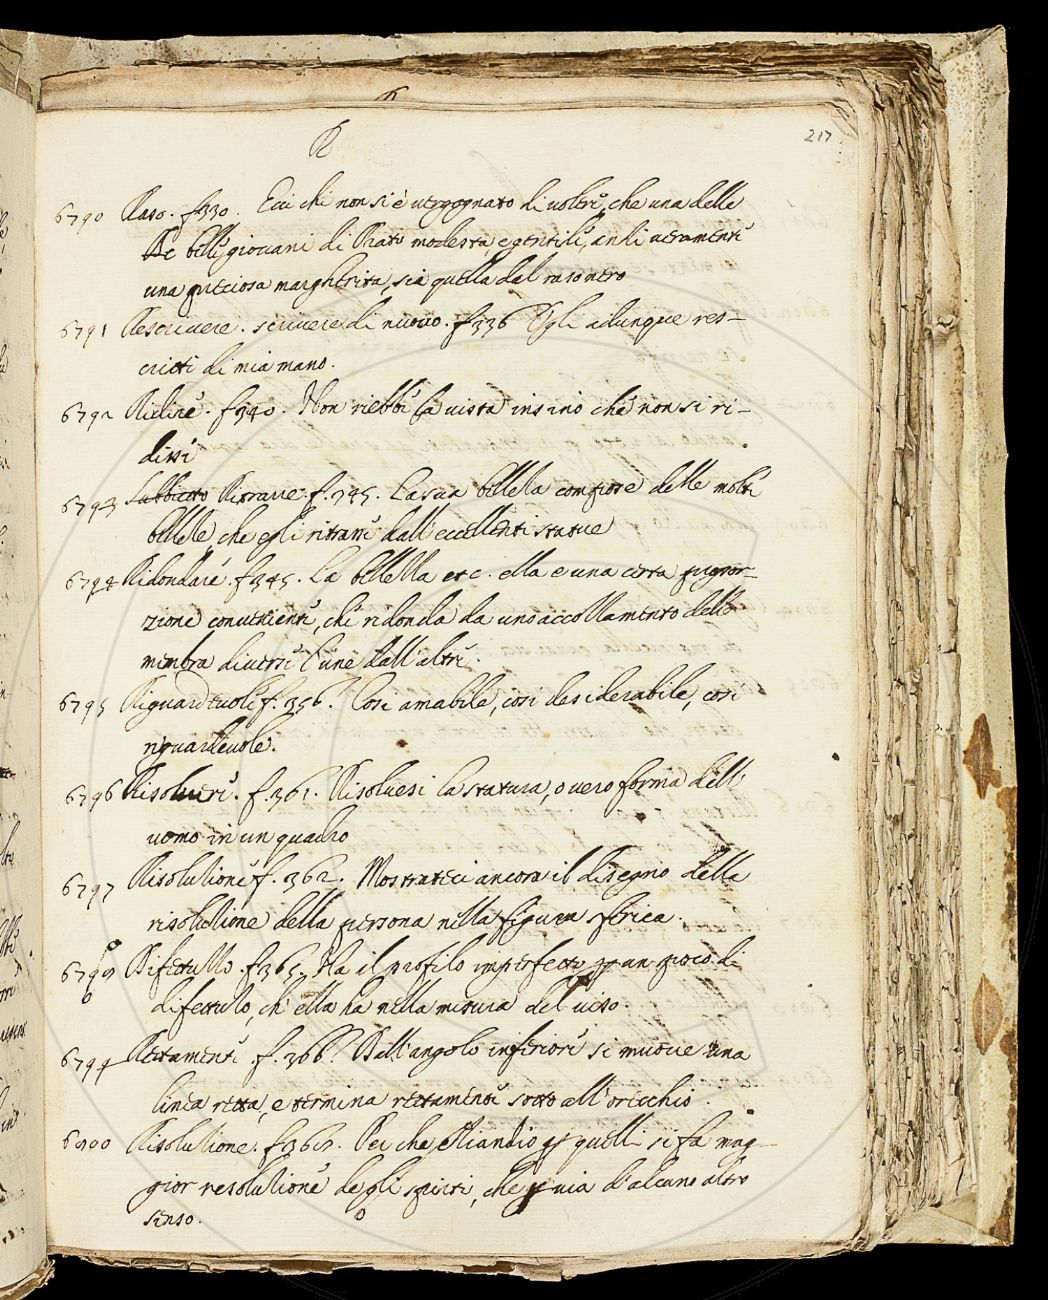 R
217
6790 Raso. f. 330. Ecci chi non si è vergognato di voler, che una delle
Re belle giovani di Prato modesta, e gentile, anzi veramente
una preciosa margherita, sia quella dal raso nero
6791 Rescrivere. scrivere di nuovo. f. 336 Egli adunque res-
critti di mia mano.
6792 Ridire. f. 340. Non riebbe la vista insino che non si ri-
dissi
6793 Ritrarre. f. 345. La sua bellezza compiose delle molte
bellezze che egli ritrasse dall'eccellenti statue
6794 Ridondare. f. 345. La bellezza etc. ella e una certa propor-
zione conveniente, che ridonda da uno accozzamento delle
membra diverse l'une dall'altre.
6795 Riguardevole f. 356. Cosi amabile, cosi desiderabile, cosi
riguardevole.
6796 Risolvere. f. 361. Risolvesi la statura, o vero forma dell'
uomo in un quadro
6797 Risoluzione f. 362. Mostrateci ancora il disegno della
risoluzione della persona nella figura sferica.
679 Difettuzzo. f. 365. Ha il profilo imperfetto per un poco di
difettuzzo, ch'ella ha nella misura del viso.
679 Rettamente f. 366. Dall'angolo inferiore si muove una
linea retta, e termina rettamente sotto all'orecchio.
Risoluzione. f. 36 che eziandio per quelli si fa mag-
gior resoluzione degli spiriti, che per via d'alcuno altro
senso.